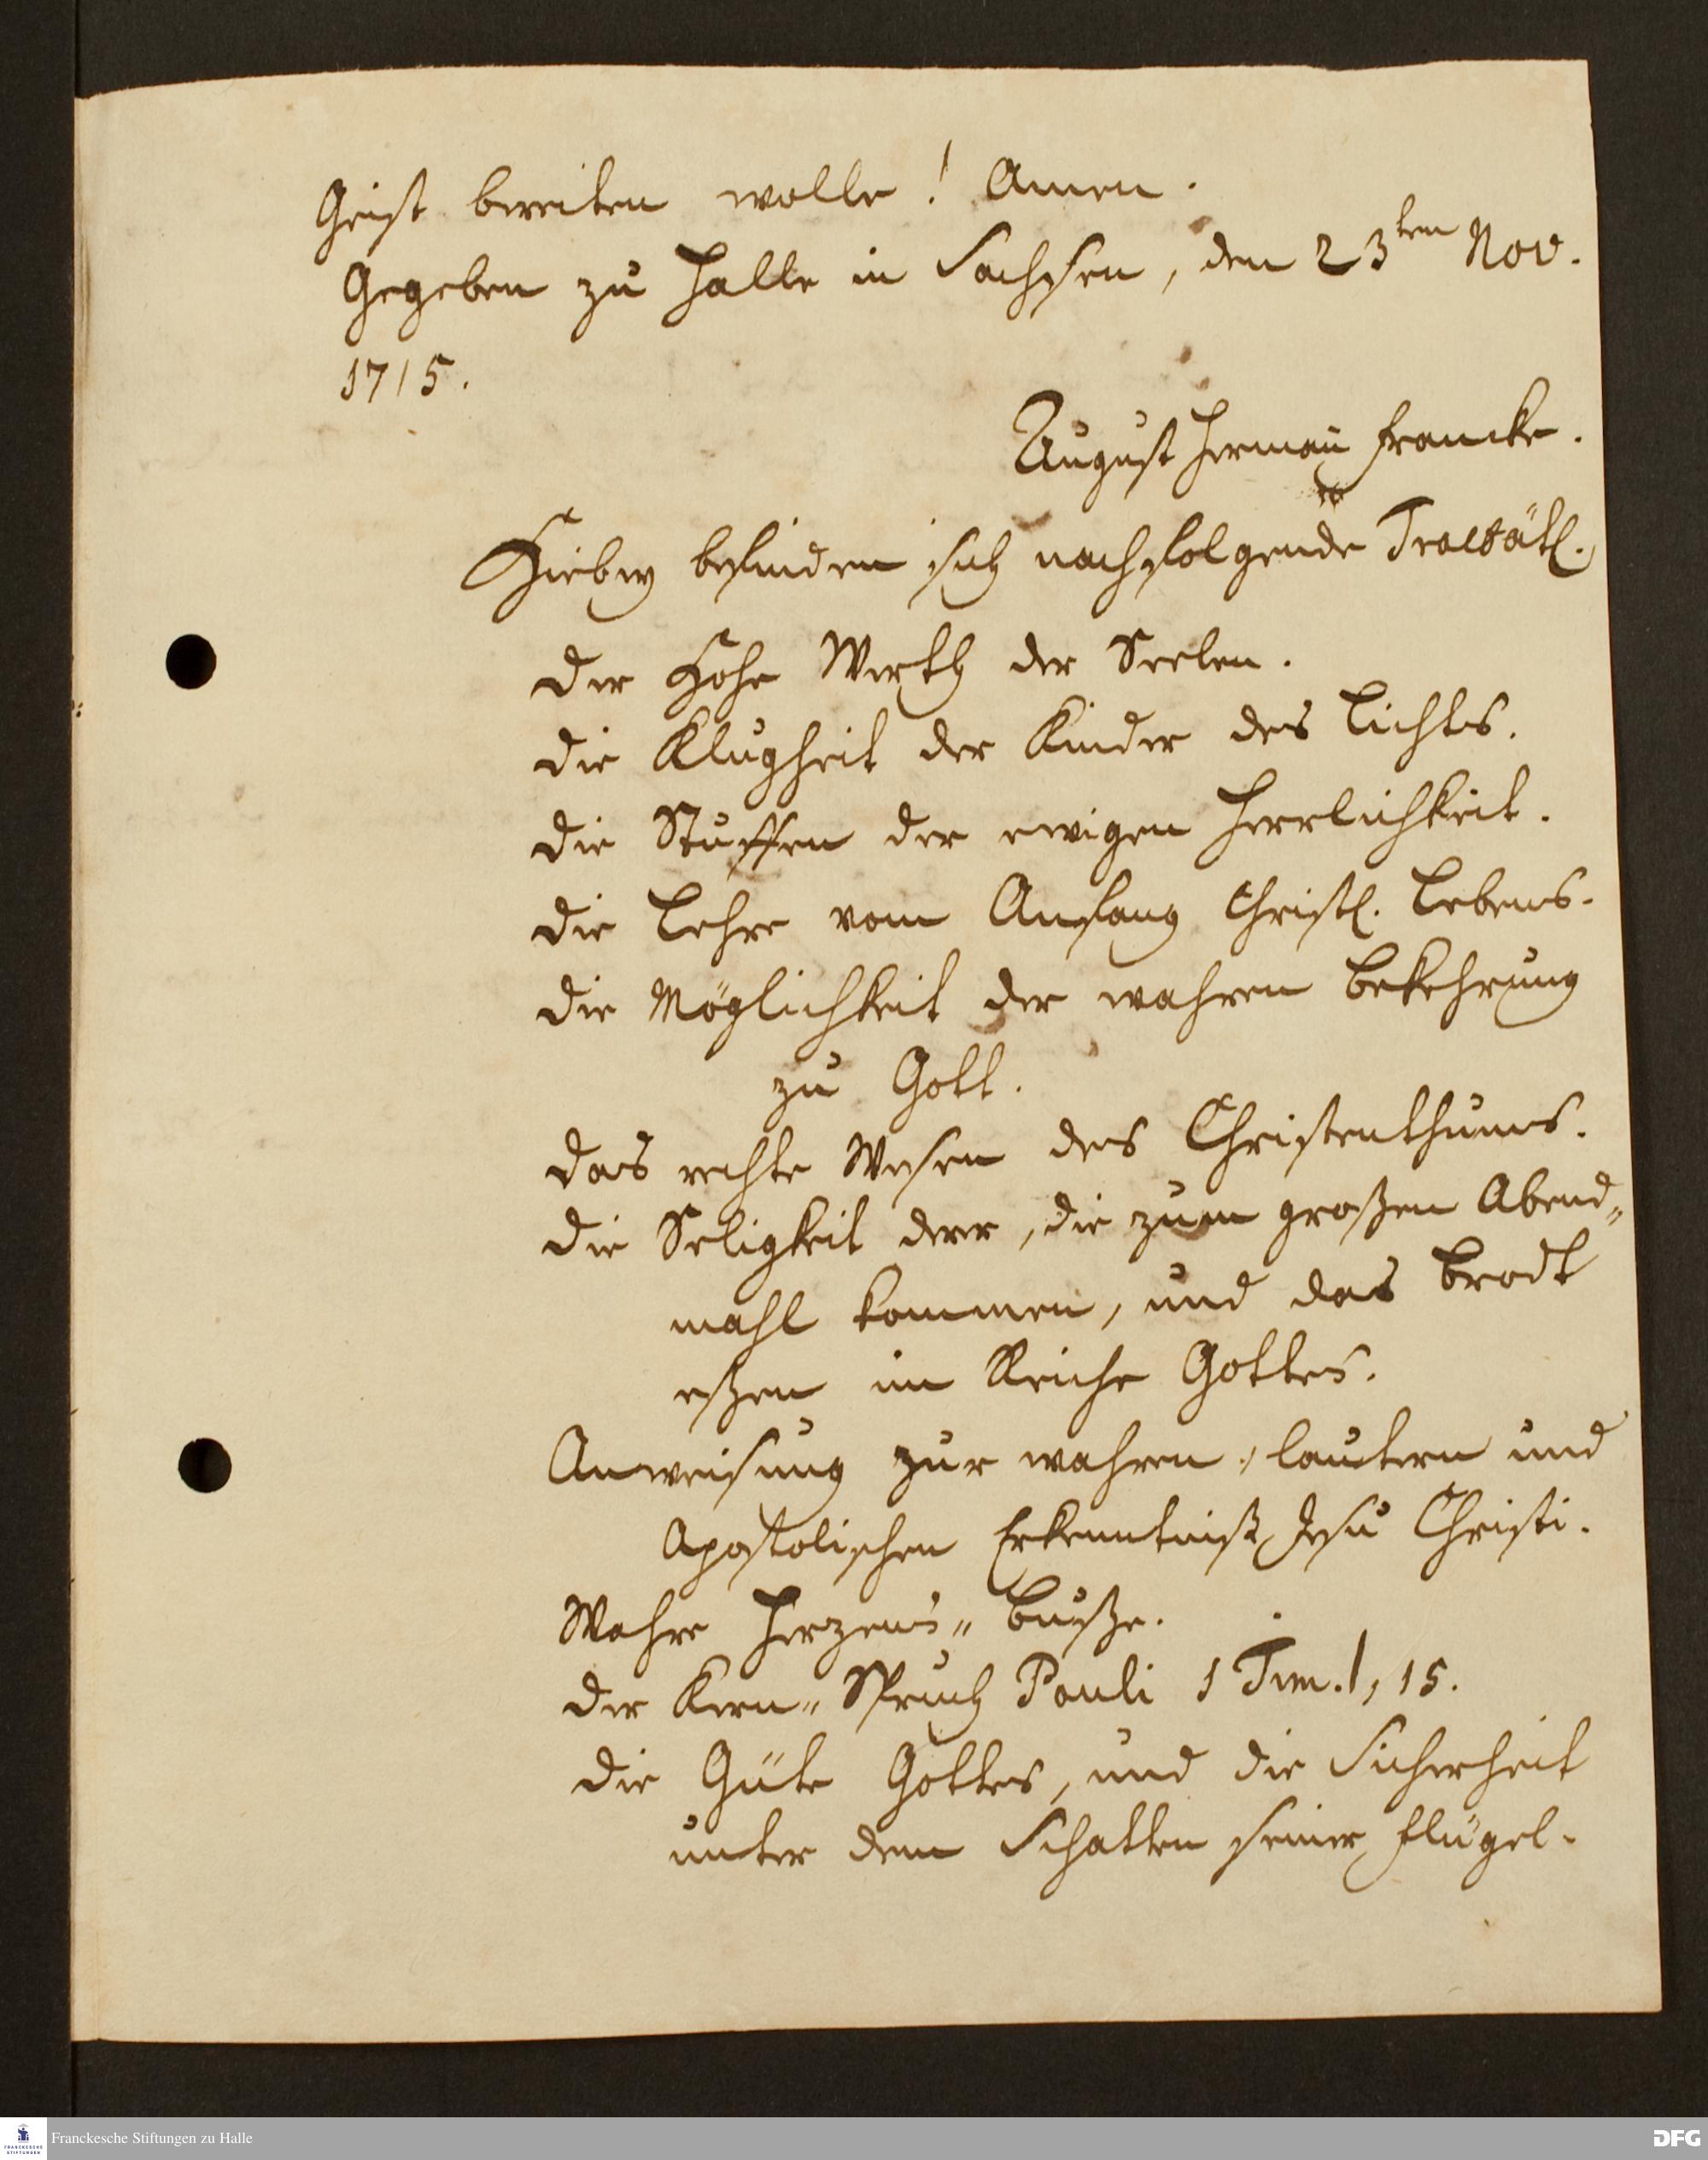 Geist bereiten wolle! Amen.
Gegeben zu Halle in Sachsen, den 23ten Nov.
1715.
August Herman̄ Francke.
Hiebey befinden sich nachfolgende Tractätl.
Der Hohe Werth der Seelen.
Die Klugheit der Kinder des Lichts.
Die Stuffen der ewigen Herrlichkeit.
Die Lehre vom Anfang Christl. Lebens.
Die Möglichkeit der wahren Bekehrung
zu Gott.
Das rechte Wesen des Christenthums.
Die Seligkeit derer, die zum großen Abend„
mahl kommen, und das Brodt
eßen im Reiche Gottes.
Anweisung zur wahren, lautern und
Apostolischen Erkenntniß Jesu Christi.
Wahre Herzens„ Buße.
Der Kern„ Spruch Pauli 1 Tim. 1, 15.
Die Güte Gottes, und die Sicherheit
unter dem Schatten seiner Flügel.
Franckesche Stiftungen zu Halle
FRANCKESCHE
STIFTUNGEN
DFG